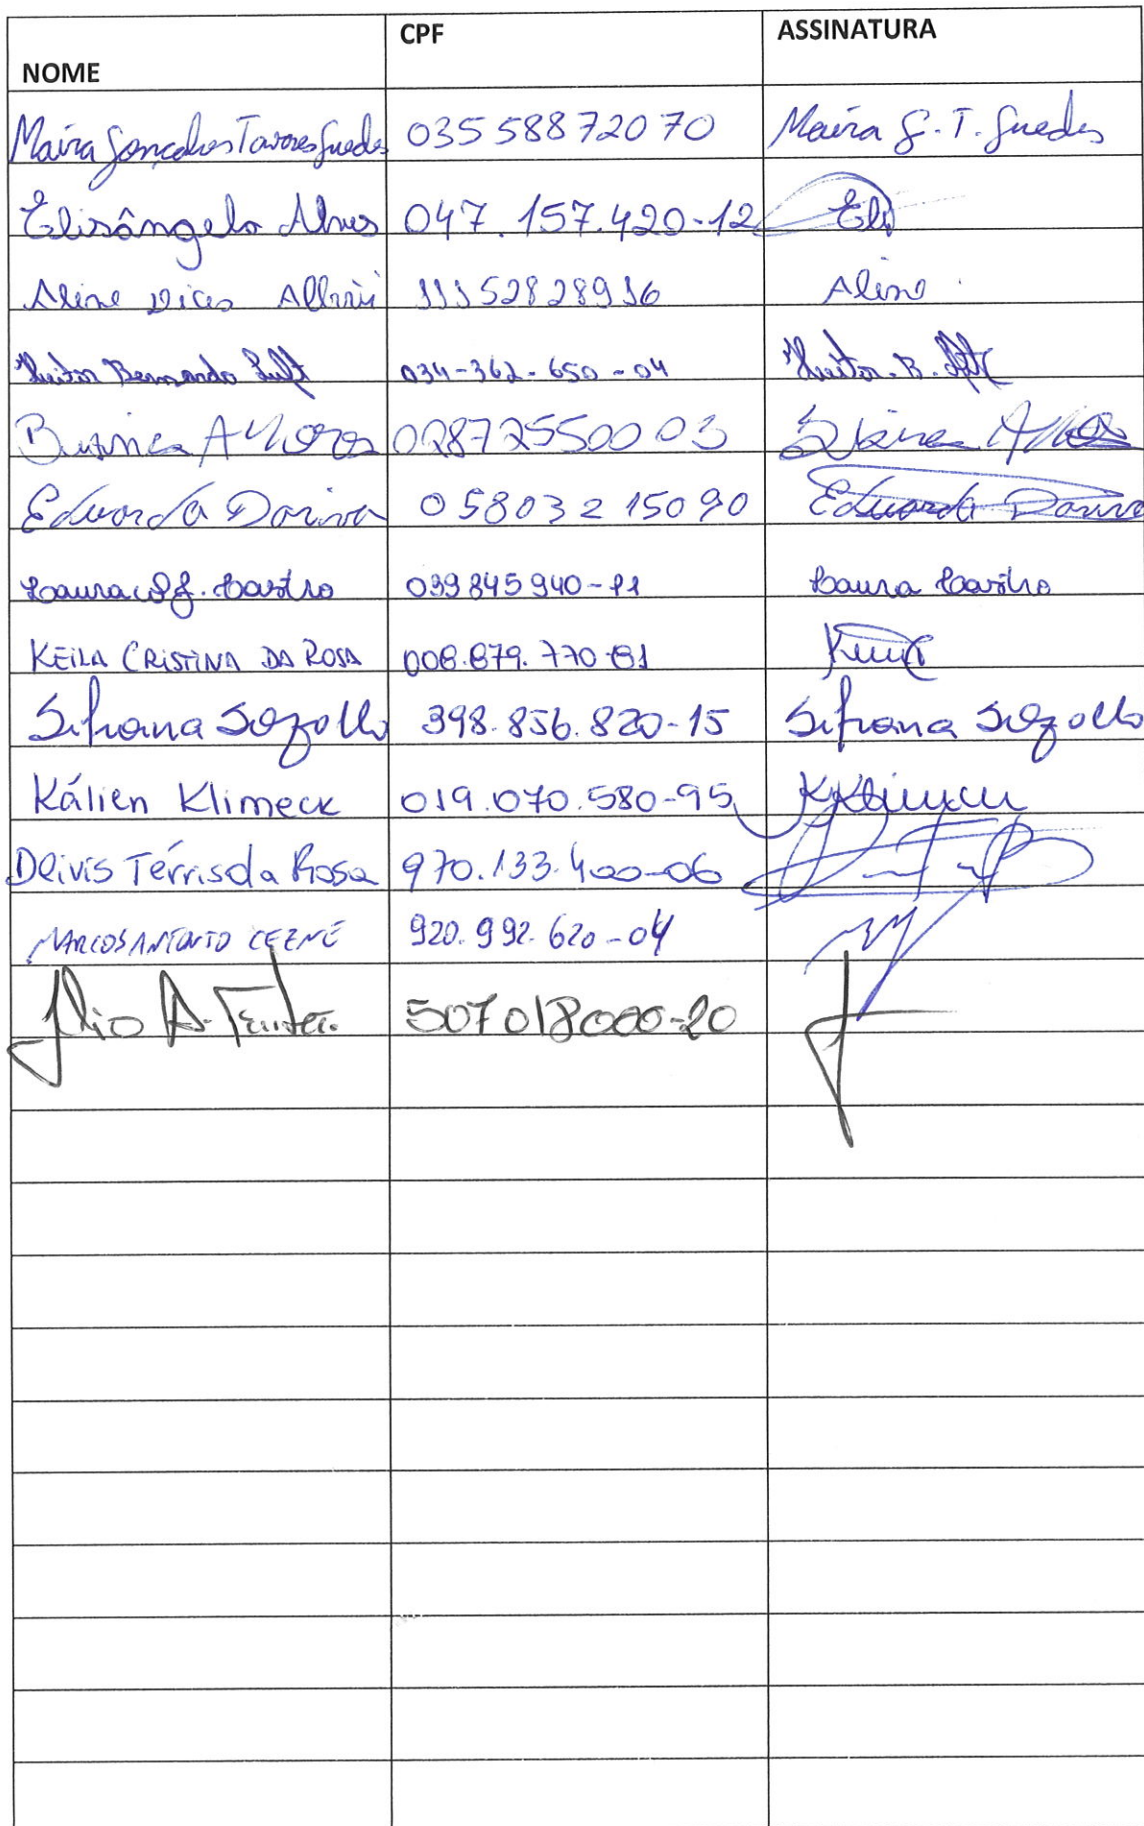 NOME CPF ASSINATURA
Maira Gonçalves Tavares Guedes 03558872070 Maira G. T. Guedes
Elisângela Alves 047.157.420-12 Eli
Aline 11152828916 Aline
Heitor Bernardo Luft 034-362-650-04 Heitor. B. Luft
02872550003
Eduarda Doriva 05803215090 Eduarda Doriva
Laura Castro 039845940-11 Laura Castro
KEILA CRISTINA DA ROSA 008.879.770-81
398.856.820-15
Kálien Klimeck 019.070.580-95 KKlimeck
Deivis Térris da Rosa 970.133.400-06
MARCOS ANTONIO CEZNE 920.992.620-04
A. 507018000-20